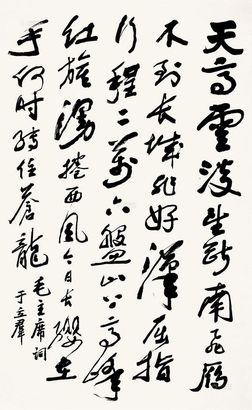 天高雲淡望斷南飛雁
不到长城非好漢屈指
行程二萬六盤山上高峰
红旗漫捲西風今日长纓在
手何时縛住蒼龍
毛主席詞
于立群